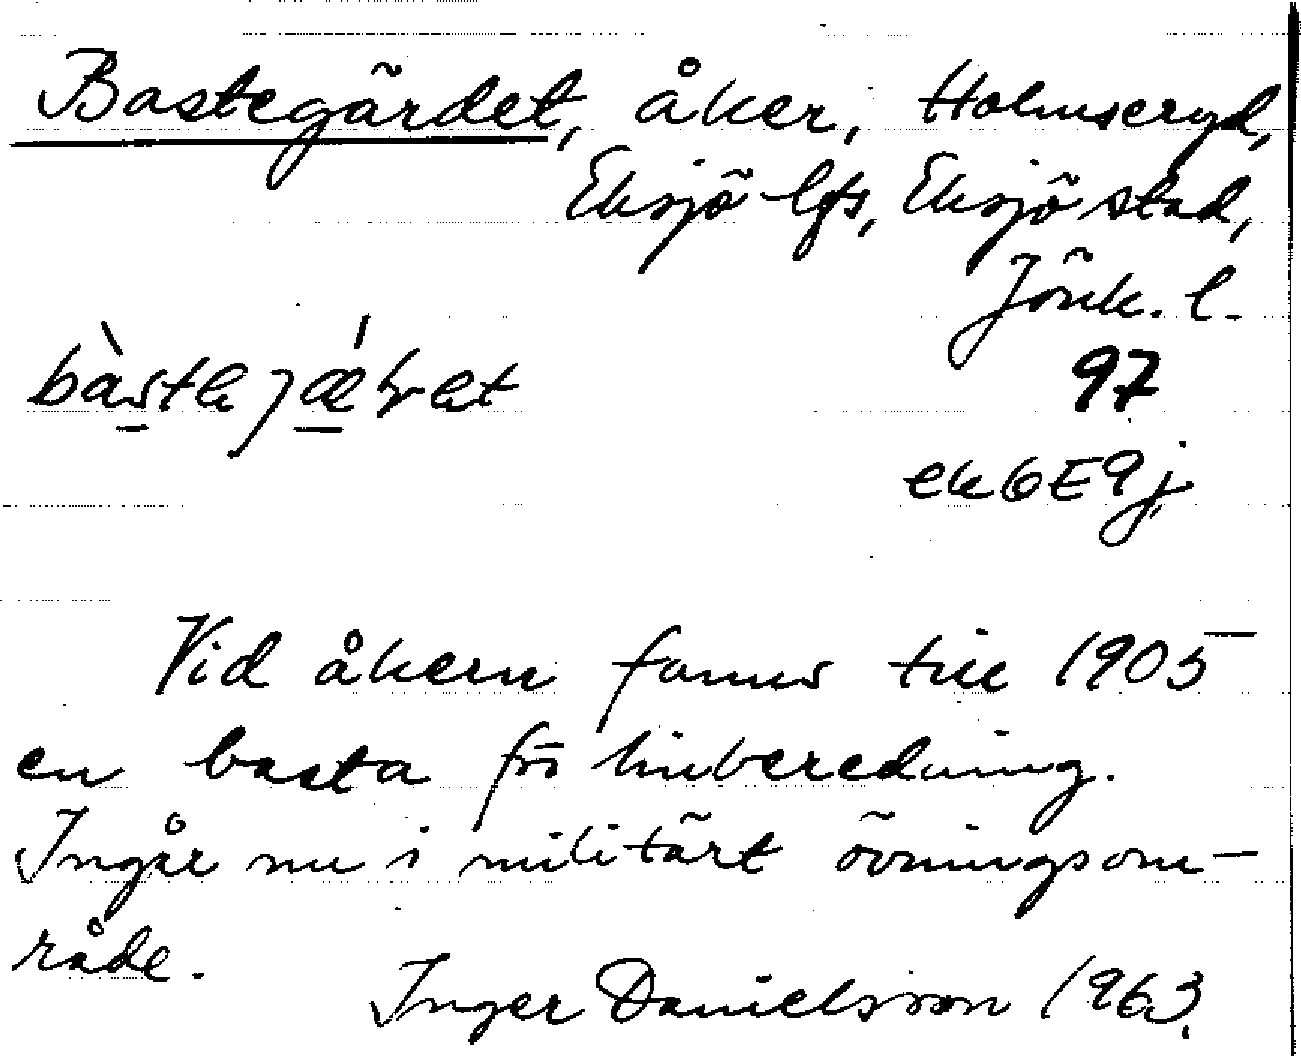 Bastegärdet, åker, Holmseryd,
Eksjö lfs, Eksjö stad,
Jönk. l.
97
ek 6E9j
Vid åkern fanns till 1905
en basta för linberedning.
Ingår nu i militärt övningsom-
råde.
Inger Danielsson 1963.